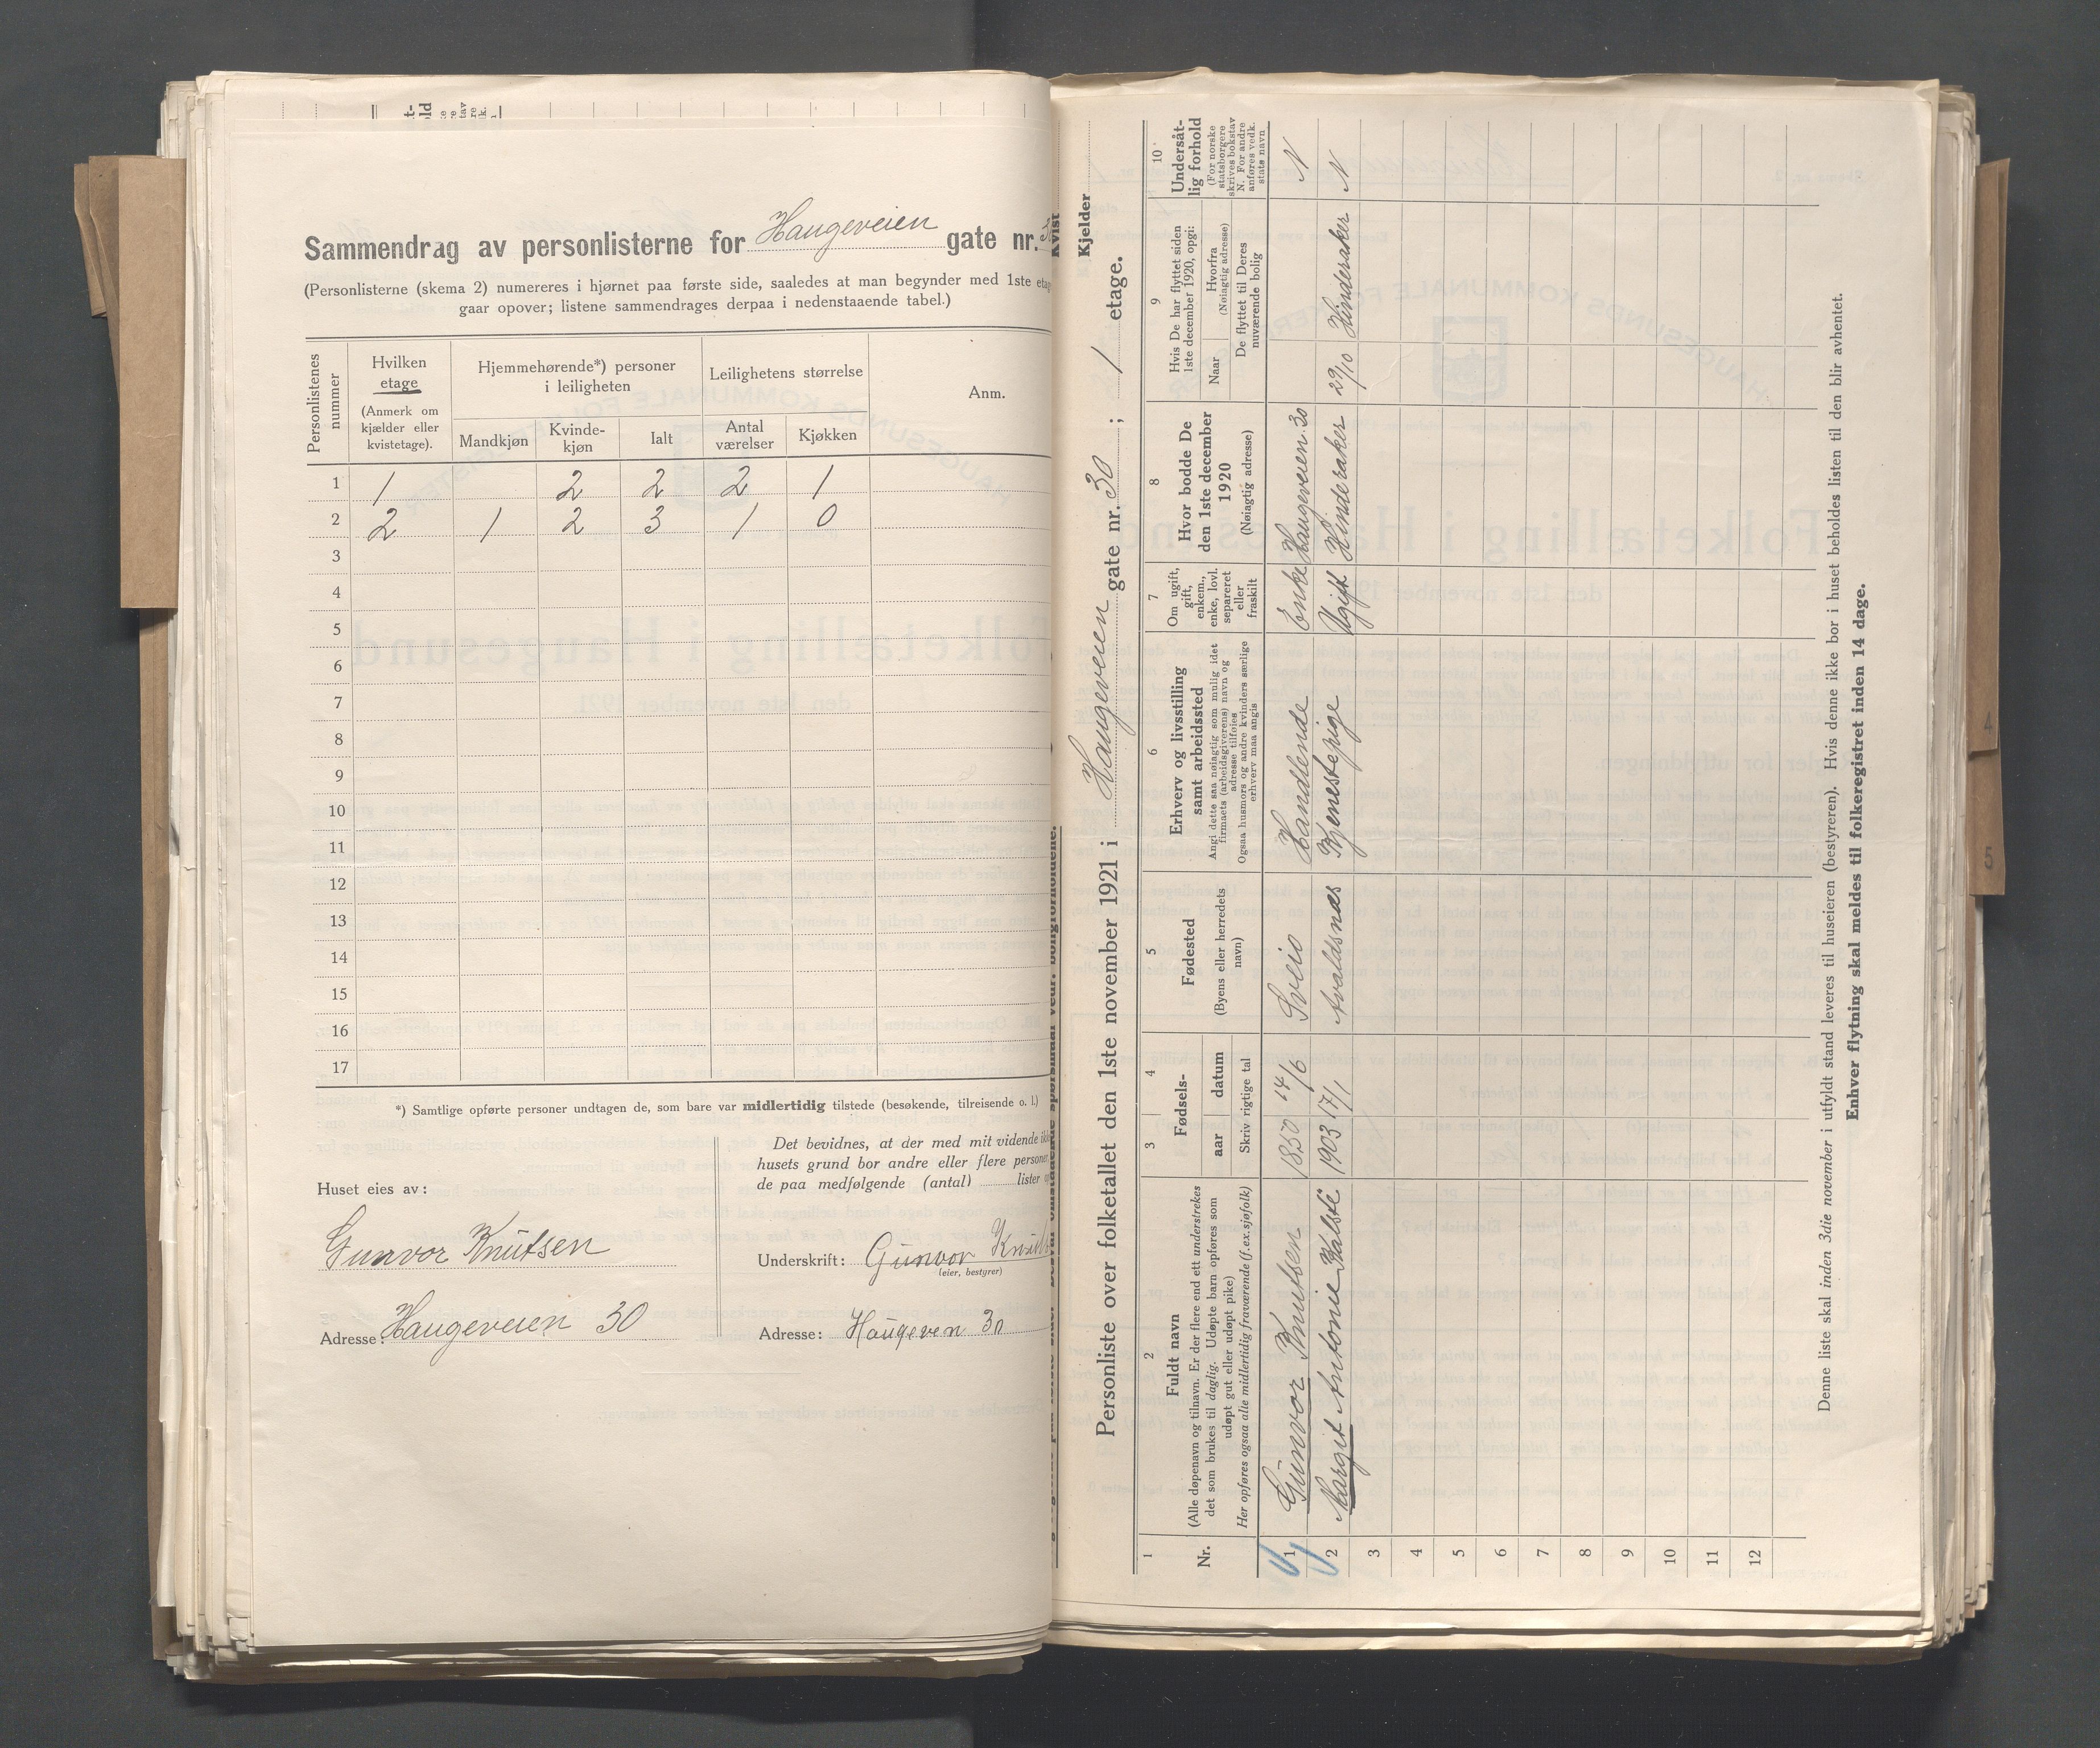 Sammendrag av personlisterne for Haugeveien gate nr. 3
(Personlisterne (skema 2) numereres i hjørnet paa første side, saaledes at man begynder med 1ste
gaar opover; listene sammendrages derpaa i nedenstaaende tabel.)
Personlistenes nummer
Hvilken etage
(Anmerk om kjælder eller kvistetage).
Hjemmehørende*) personer i leiligheten
Mandkjøn
Kvindekjøn
Ialt
Leilighetens størrelse
Antal værelser
Kjøkken
Anm.
1 1 2 2 2 1
2 2 1 2 3 1 0
3
4
5
6
7
8
9
10
11
12
13
14
15
16
17
*) Samtlige opførte personer undtagen de, som bare var midlertidig tilstede (besøkende, tilreisende o. l.)
Huset eies av:
Gunvor Knutsen
Adresse: Haugeveien 30
Det bevidnes, at der med mit vidende
husets grund bor andre eller flere personer
de paa medfølgende (antal) lister
Underskrift: Gunvor
(eier, bestyrer)
Adresse: Haugeven 30
Kvist
Kjelder
Personliste over folketallet den 1ste november 1921 i Haugeveien gate nr. 30 ; 1 etage.
1
Nr.
2
Fuldt navn
(Alle døpenavn og tilnavn. Er der flere end ett understrekes
det som brukes til daglig. Udøpte barn opføres som
udøpt gut eller udøpt pike)
Her opføres ogsaa alle midlertidig fraværende (f.ex. sjøfolk)
3 4
Fødsels-
aar datum
Skriv rigtige tal
5
Fødested
(Byens eller herredets navn)
6
Erhverv og livsstilling
samt arbeidssted
Angi dette saa nøiagtig som mulig idet
firmaets (arbeidsgiverens) navn og
adresse tilføies
Ogsaa husmors og andre kvinders særlige
erhverv maa angis
7
Om ugift,
gift,
enkem.,
enke, lovl.
separeret
eller
fraskilt
8
Hvor bodde De
den 1ste december
1920
(Nøiagtig adresse)
9
Hvis De har flyttet siden
1ste december 1920, opgi:
Naar
Hvorfra
(Nøiagtig adresse)
De flyttet til Deres
nuværende bolig
10
Undersåt-
lig forhold
(For norske
statsborgere
skrives bokstav
N. For andre
anføres vedk.
stats navn
1 Gunvor Knutsen 1850 14/6 Sveio Handlende Enke Haugeveien 30 N
2 Margit Antonie Kalstè 1903 17/1 Avaldsnæs Tjenestepige Ugift Hinderaker 29/10 Hinderaker N
3
4
5
6
7
8
9
10
11
12
Denne liste skal inden 3die november i utfyldt stand leveres til huseieren (bestyreren). Hvis denne ikke bor i huset beholdes listen til den blir avhentet.
Enhver flytning skal meldes til folkeregistret inden 14 dage.